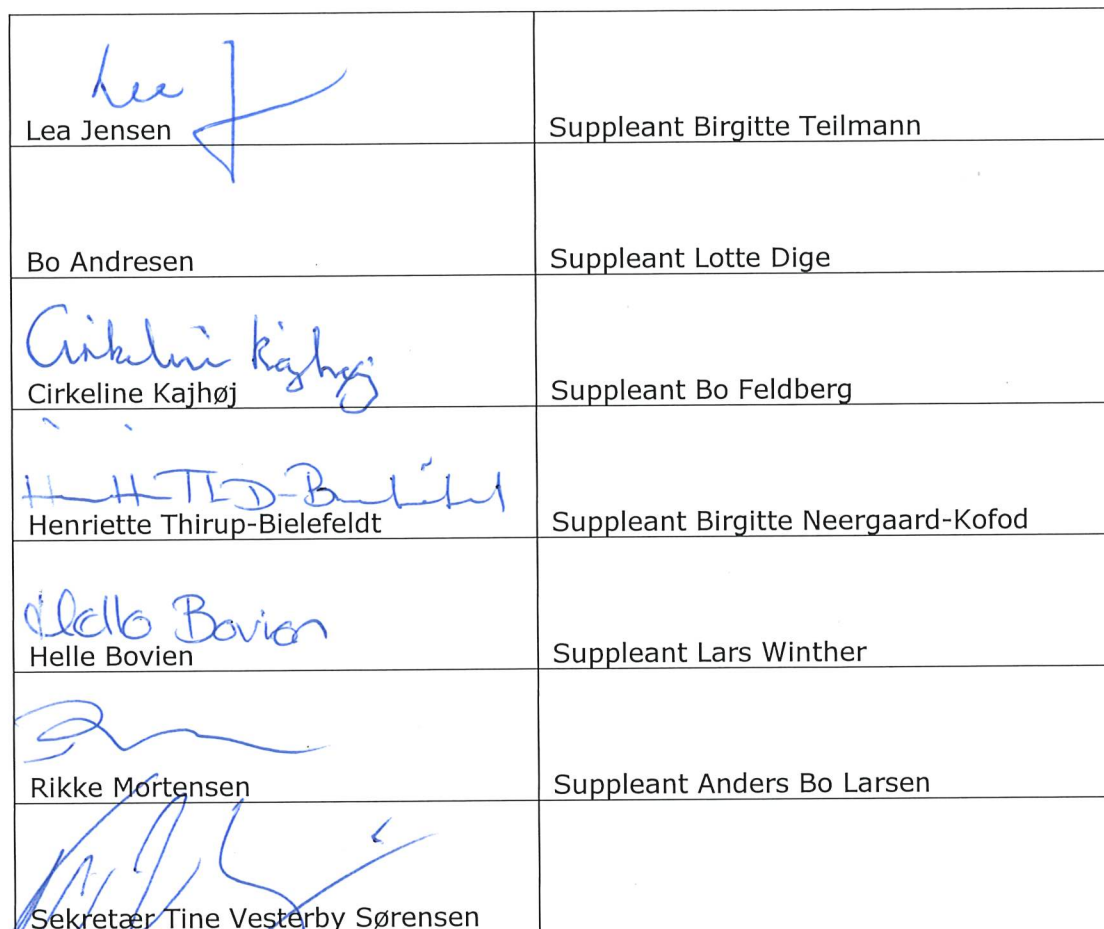 Lea
Lea Jensen
Suppleant Birgitte Teilmann
Bo Andresen
Suppleant Lotte Dige
Cirkeline Kajhøj
Cirkeline Kajhøj
Suppleant Bo Feldberg
Henriette Thirup-Bielefeldt
Suppleant Birgitte Neergaard-Kofod
Helle Bovien
Helle Bovien
Suppleant Lars Winther
Rikke Mortensen
Suppleant Anders Bo Larsen
Sekretær Tine Vesterby Sørensen